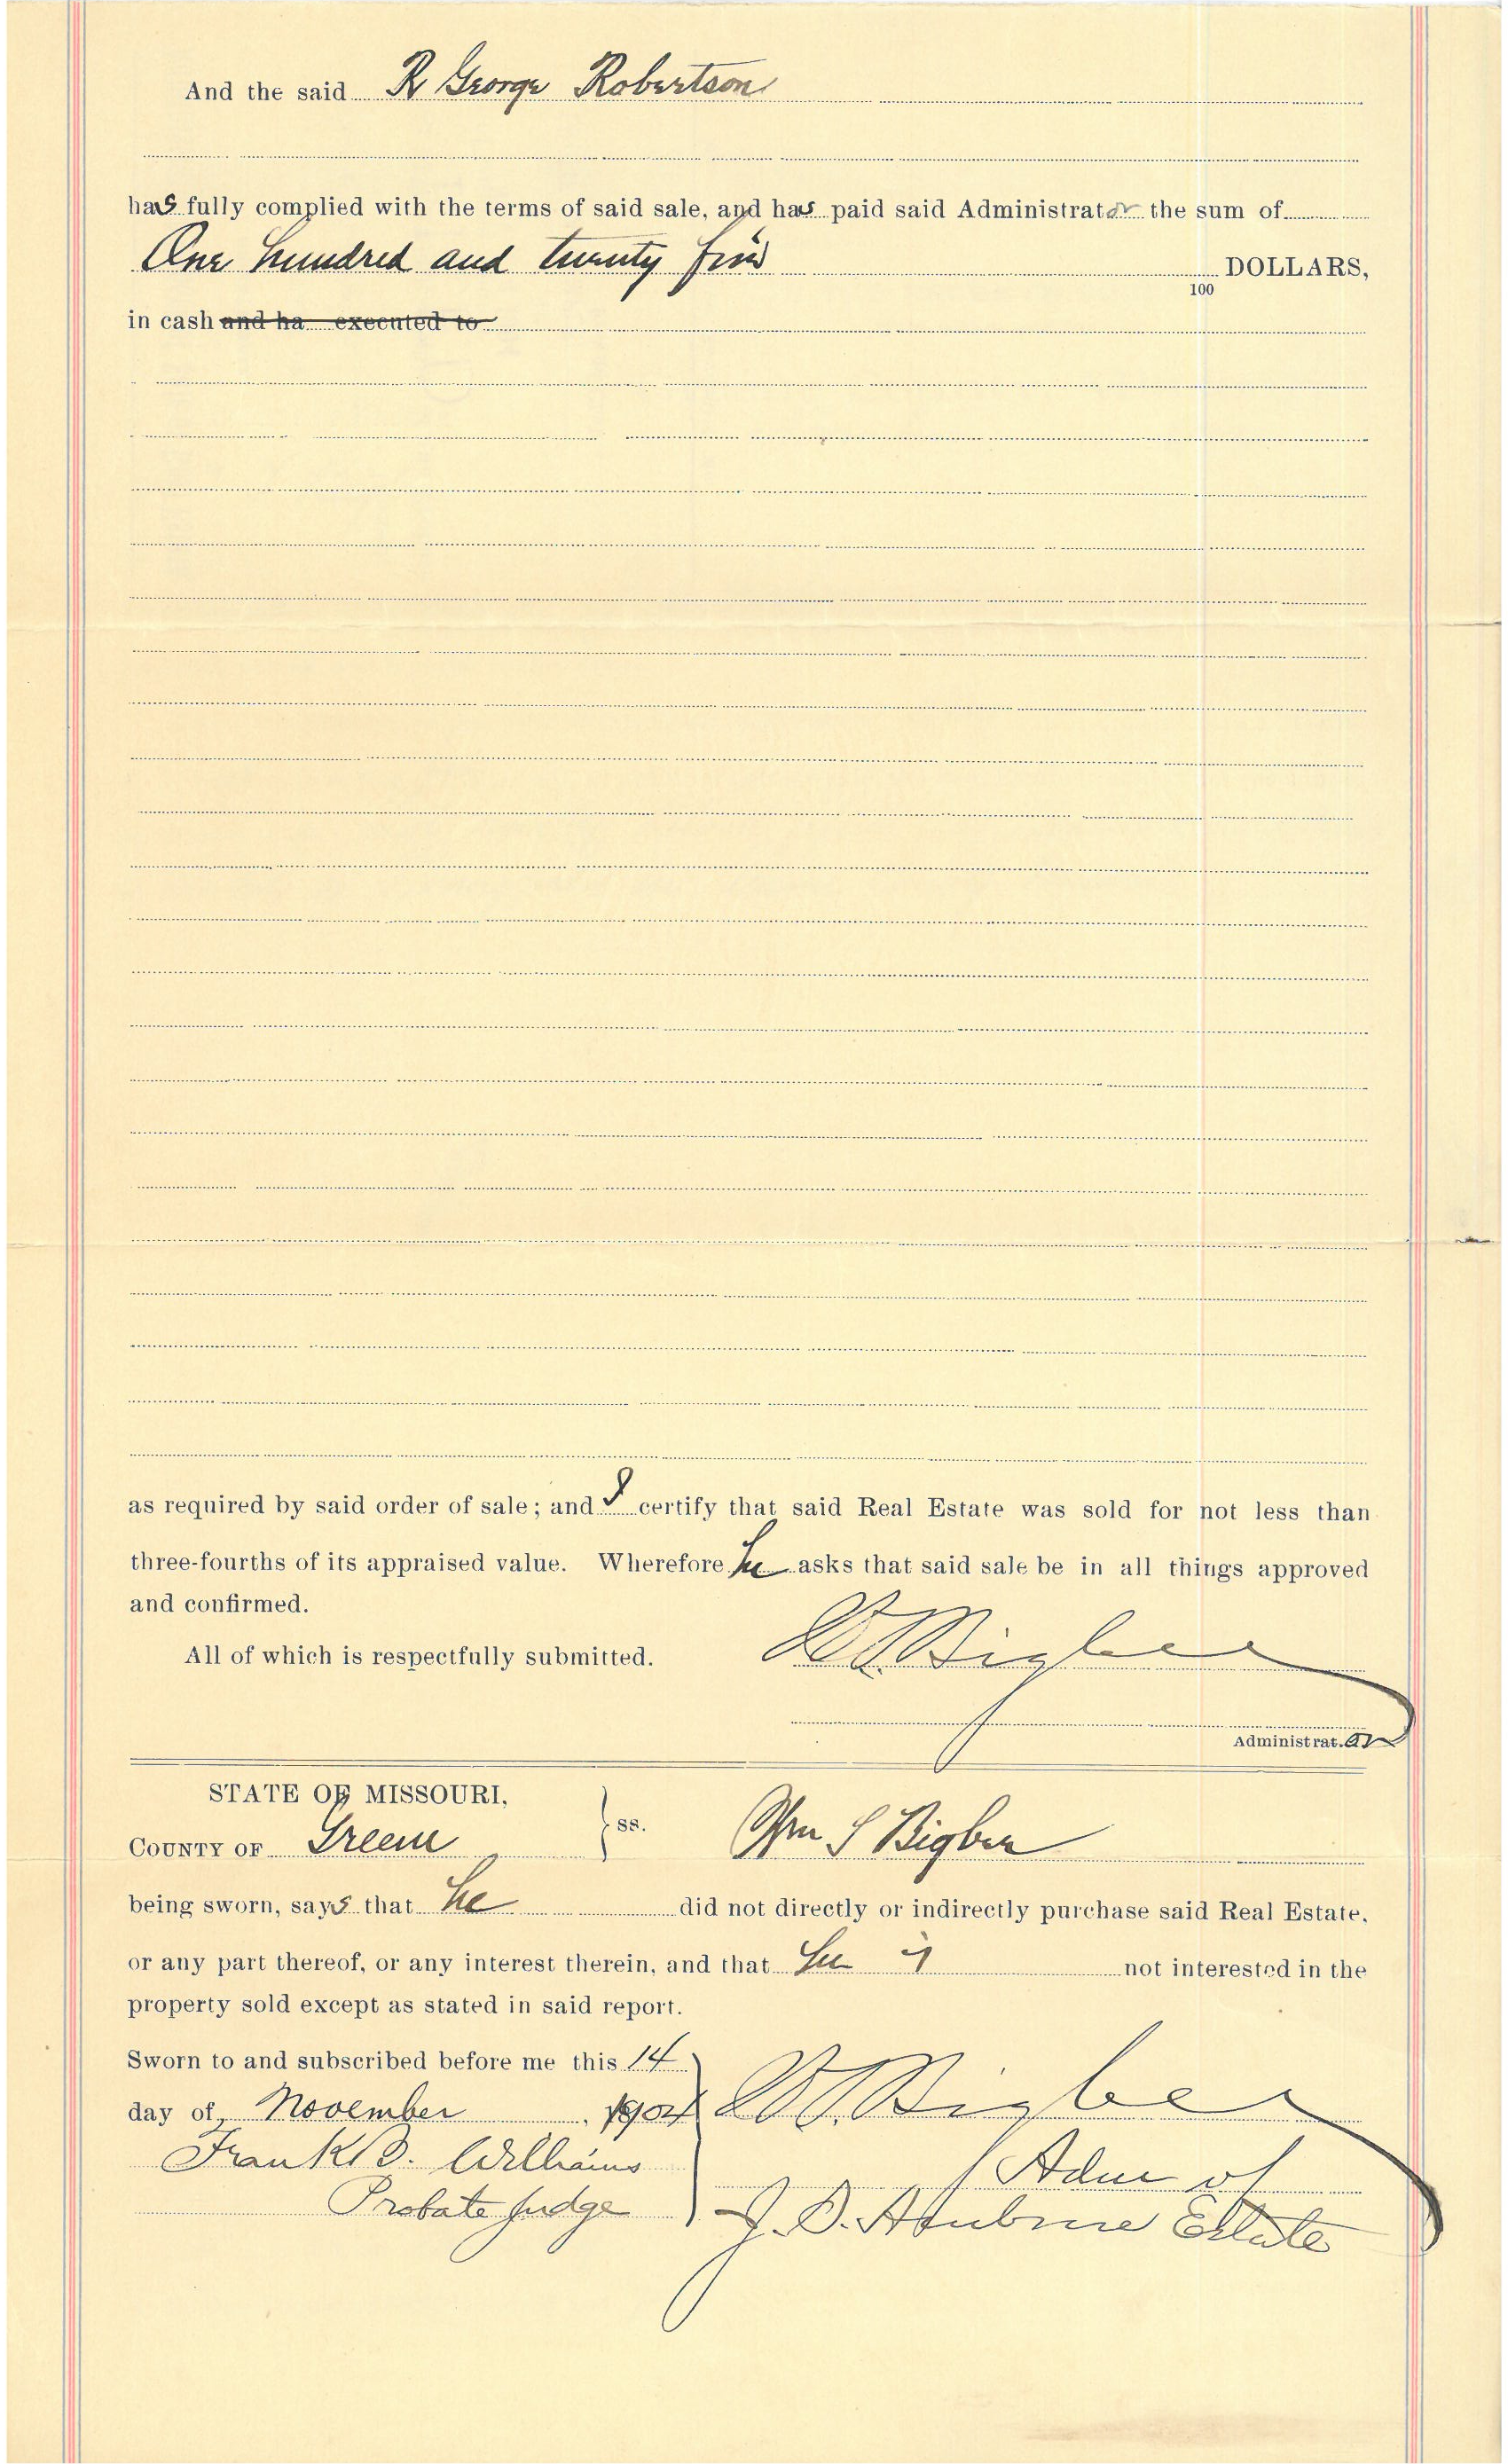 And the said R George Robertson
has fully complied with the terms of said sale, and has paid said Administrator the sum of
One hundred and twenty five DOLLARS,
100
in cash and ha executed to
as required by said order of sale; and I certify that said Real Estate was sold for not less than
three-fourths of its appraised value. Wherefore he asks that said sale be in all things approved
and confirmed.
All of which is respectfully submitted. Bigbee
Administrator
STATE OF MISSOURI,
COUNTY OF Greene ss. Wm S Bigbee
being sworn, says that he did not directly or indirectly purchase said Real Estate,
or any part thereof, or any interest therein, and that he is not interested in the
property sold except as stated in said report.
Sworn to and subscribed before me this 14
day of November, 1904 Bigbee
Frank B. Williams Adm of
Probate Judge J. D. Estate